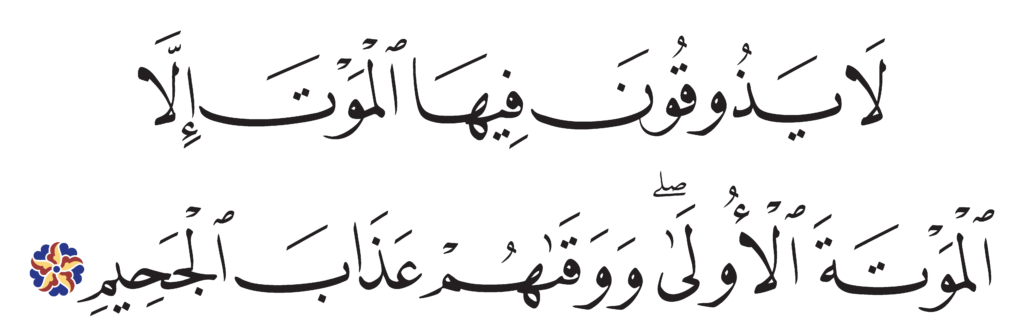 لَا يَذُوقُونَ فِيهَا ٱلْمَوْتَ إِلَّا
ٱلْمَوْتَةَ ٱلْأُولَىٰ ۖ وَوَقَىٰهُمْ عَذَابَ ٱلْجَحِيمِ